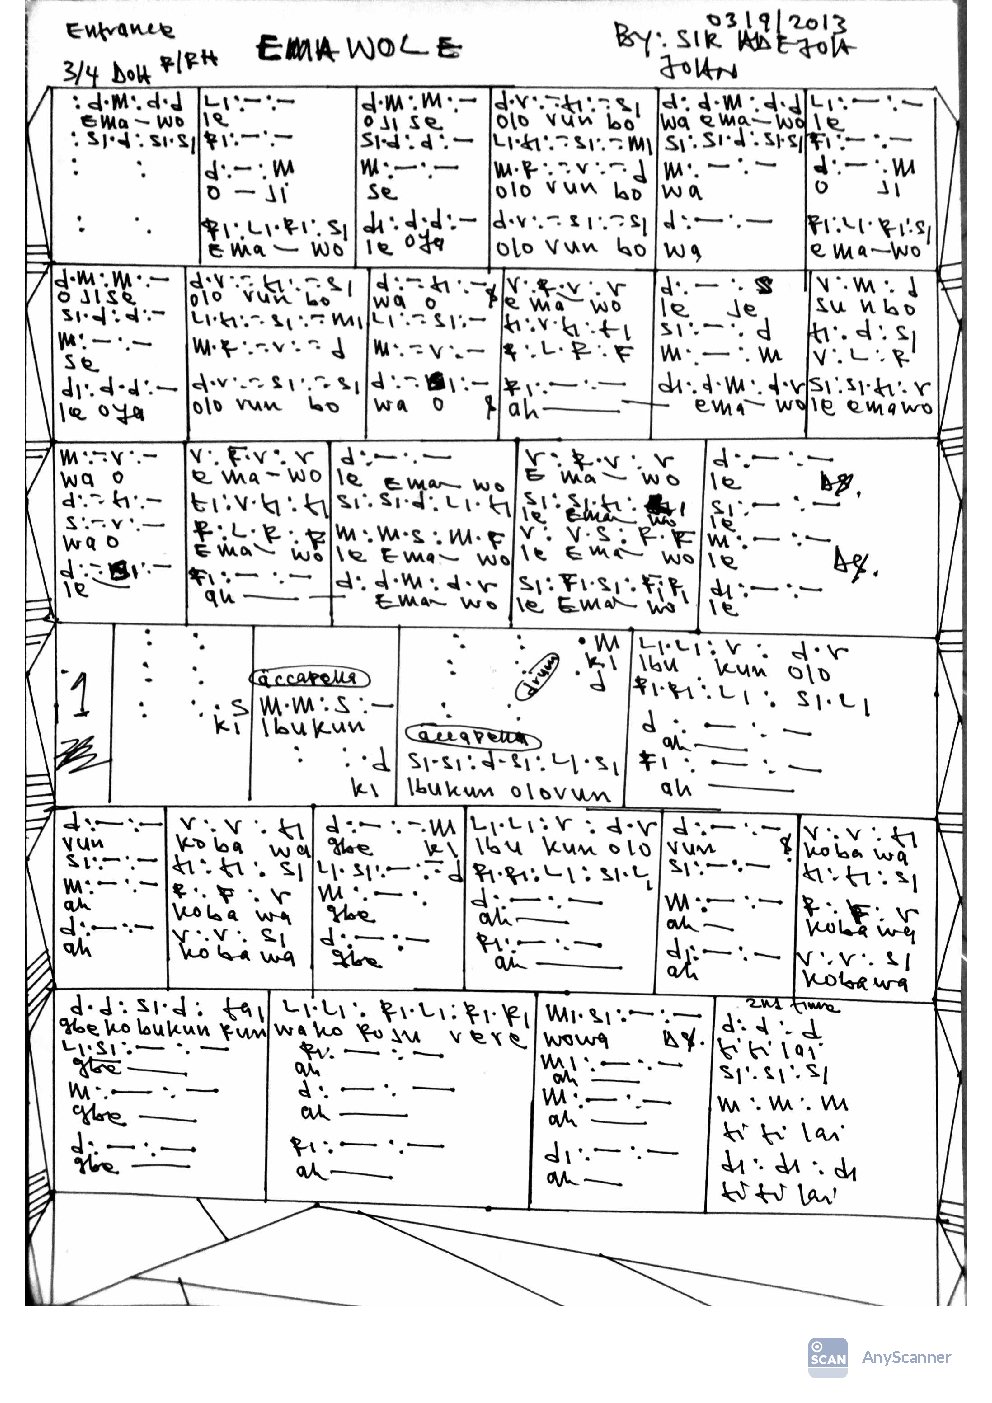 Entrance
EMA WOLE
03/9/2013
BY: SIR ADEJOH
JOHN
3/4 DOH R/RH
: d.M : d.d | L1:—:— | d.M:M:— | d.v:-t1:-s1 | d:d.M:d.d | L1:—:—
Ema-wo | le | OJI se | olo vun bo | wa ema-wo | le
: s1.d:s1.s1 | F1:—:— | s1.d:d:— | L1.t1:-s1:-m1 | s1:s1.d:s1.s1 | F1:—:—
: . | d:—:M | m:—:— | m.R:-v:-d | m:—:— | d:—:M
O — Ji | se | olo vun bo | wa | O Ji
: . | F1:L1.F1:s1 | d1:d.d:— | d.v:-s1:-s1 | d:—:— | F1:L1.F1:s1
Ema-wo | le oya | olo vun bo | wa | ema-wo
d.M:M:— | d.v:-t1:-s1 | d:-t1:— | v:F.v:v | d:—:s | v:m:d
O JI se | olo vun bo | wa o | e ma-wo | le Je | su n bo
s1.d:d:— | L1.t1:-s1:-m1 | L1:-s1:— | t1:v.t1:t1 | s1:—:d | t1:d:s1
m:—:— | m.R:-v:-d | m:-v:— | F:L.F:F | m:—:m | v:L:F
se
d1:d.d:— | d.v:-s1:-s1 | d:-s1:— | F1:—:— | d1:d.m:d.v | s1:s1.t1:v
le oya | olo vun bo | wa o | ah—— | ema-wo | le emawo
m:-v:— | v:F.v:v | d:—:— | v:F.v:v | d:—:—
wa o | e ma-wo | le Ema-wo | Ema-wo | le D.S.
d:-t1:— | t1:v.t1:t1 | s1:s1.d:L1.t1 | s1:s1.t1: | s1:—:—
le Ema-wo | le
s:-v:— | F:L.F:F | m:m.s:m.F | v:v.s:F.F | m:—:—
wa o | Ema-wo | le Ema-wo | le Ema-wo | le D.S.
d:-s1:— | F1:—:— | d:d.m:d.v | s1:F1.s1:F1.F1 | d1:—:—
le | ah—— | Ema-wo | le Ema-wo | le
1
accapella | drum | .M | L1.L1:v:d.v
ki | Ibu kun olo
d | F1.F1:L1:s1.L1
.s | m.m:s:— | d:—:—
ki | Ibukun | accapella | ah——
.d | s1.s1:d.s1:L1.s1 | F1:—:—
ki | Ibukun olovun | ah——
d:—:— | v:v:t1 | d:—:-.m | L1.L1:v:d.v | d:—:— | v:v:t1
vun | koba wa | gbe ki | Ibu kun olo | vun | koba wa
s1:—:— | t1:t1:s1 | L1.s1:—:-d | F1.F1:L1:s1.L1 | s1:—:— | t1:t1:s1
m:—:— | F:F:v | m:—:— | d:—:— | m:—:— | F:F:v
ah | koba wa | gbe | ah—— | ah— | koba wa
d:—:— | v:v:s1 | d:—:— | F1:—:— | d1:—:— | v:v:s1
ah | koba wa | gbe | ah—— | ah | kobawa
d.d:s1.d: | L1.L1:F1.L1:F1.F1 | m1.s1:—:— | 2nd time
gbe kobukun | wako | vere | wowa D.S. | d:d:d
L1.s1:—:— | F1:—:— | m1:—:— | titi lai
gbe—— | ah | ah—— | s1:s1:s1
m:—:— | d:—:— | m:—:— | m:m:m
gbe—— | ah—— | ah—— | titi lai
d:—:— | F1:—:— | d1:—:— | d1:d1:d1
gbe—— | ah—— | ah—— | titi lai
SCAN AnyScanner